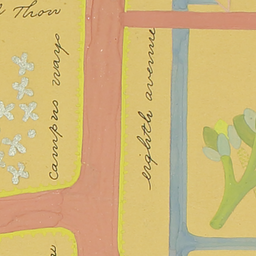 Thow
campus ways
eighth avenue